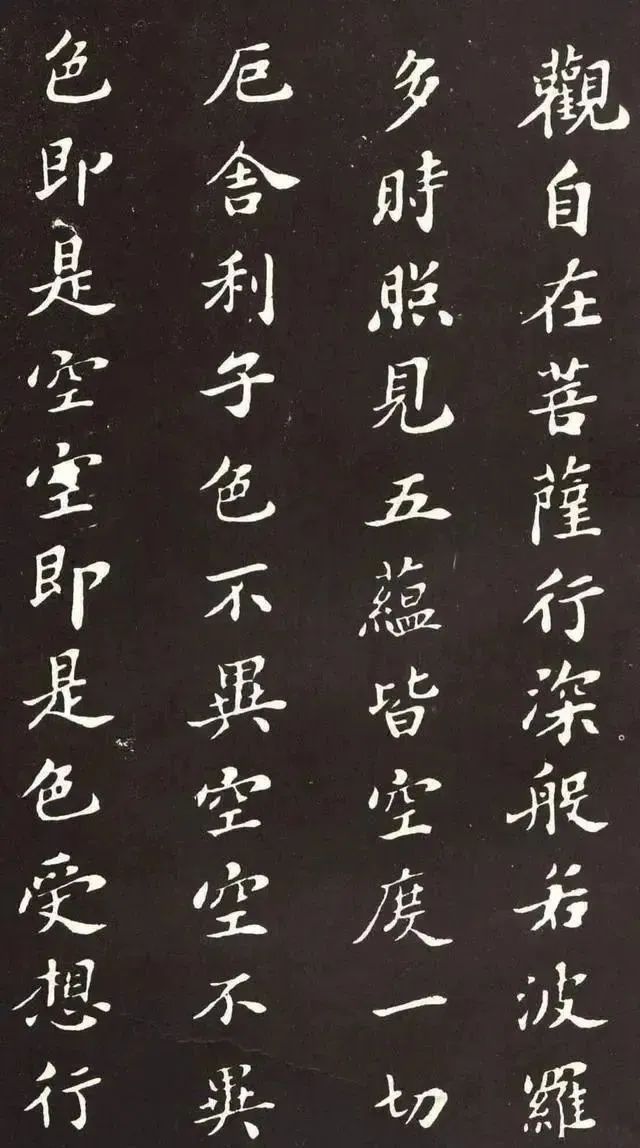 觀自在菩薩行深般若波羅
多時照見五蘊皆空度一切
厄舍利子色不異空空不異
色即是空空即是色受想行